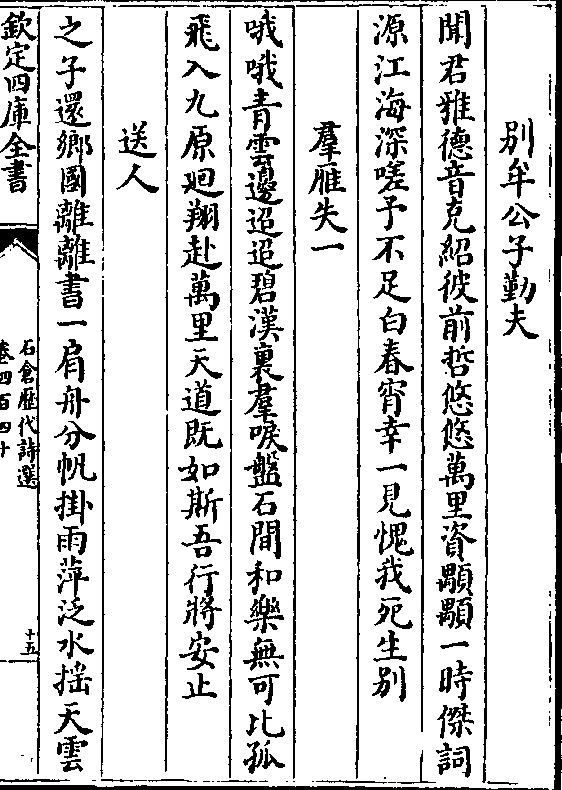 別牟公子勤夫
聞君雅德音克紹彼前哲悠悠萬里資顒顒一時傑詞
源江海深嗟予不足白春宵幸一見愧我死生別
羣雁失一
哦哦青雲邊迢迢碧漢裏羣唳盤石間和樂無可比孤
飛入九原廻翔赴萬里天道既如斯吾行將安止
送人
之子還鄉國離離書一肩舟分帆掛雨萍泛水揺天雲
欽定四庫全書
石倉歷代詩選
卷四百四十
十五